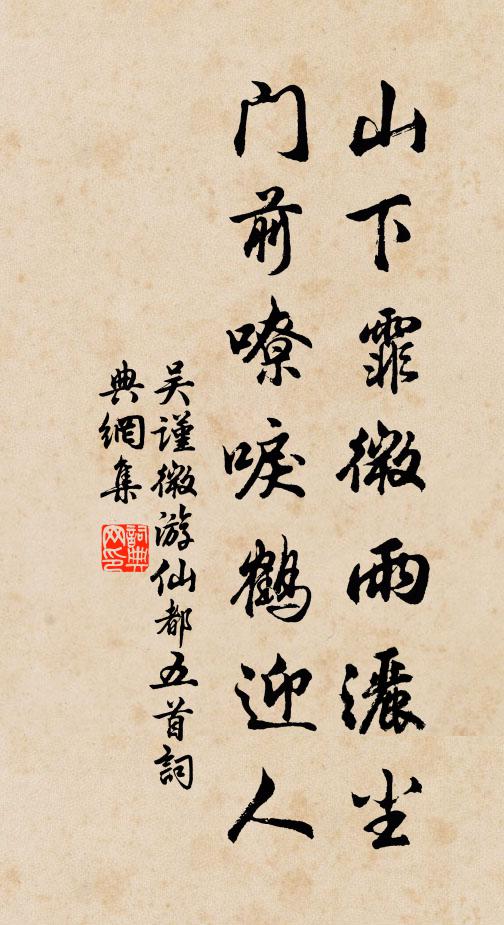 山下霏微雨灑尘
门前嘹唳鹤迎人
吴谨微游仙都五首詞
典網集
詞典
网印